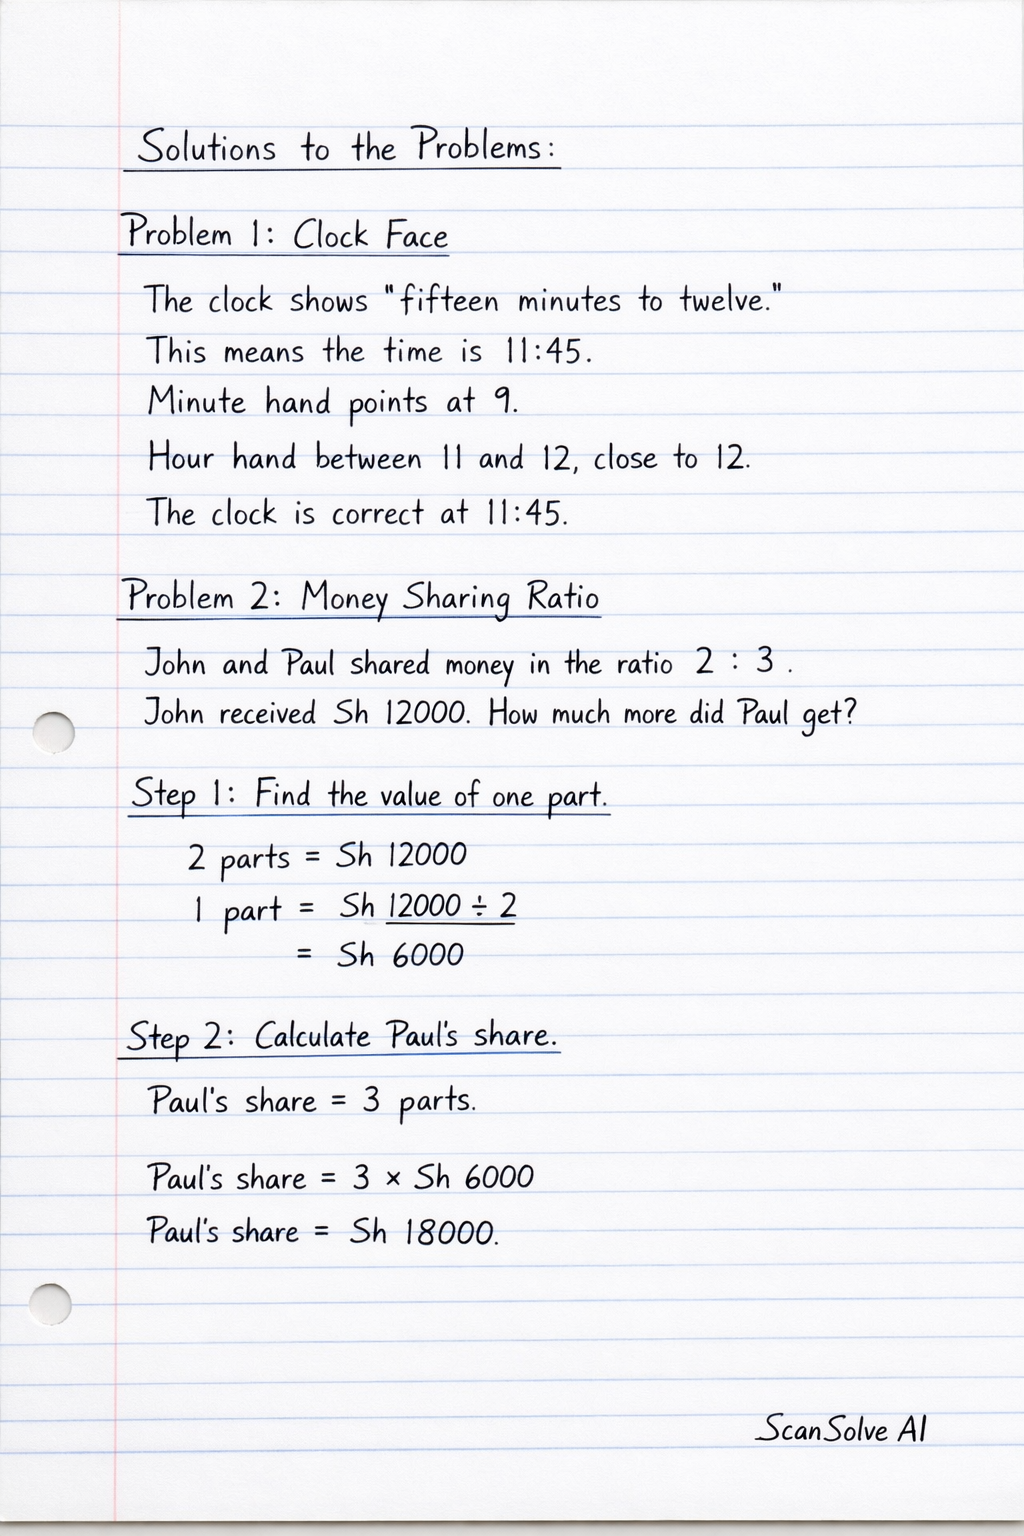 Solutions to the Problems:
Problem 1: Clock Face
The clock shows "fifteen minutes to twelve."
This means the time is 11:45.
Minute hand points at 9.
Hour hand between 11 and 12, close to 12.
The clock is correct at 11:45.
Problem 2: Money Sharing Ratio
John and Paul shared money in the ratio 2 : 3 .
John received Sh 12000. How much more did Paul get?
Step 1: Find the value of one part.
2 parts = Sh 12000
1 part = Sh 12000 ÷ 2
= Sh 6000
Step 2: Calculate Paul's share.
Paul's share = 3 parts.
Paul's share = 3 × Sh 6000
Paul's share = Sh 18000.
ScanSolve AI